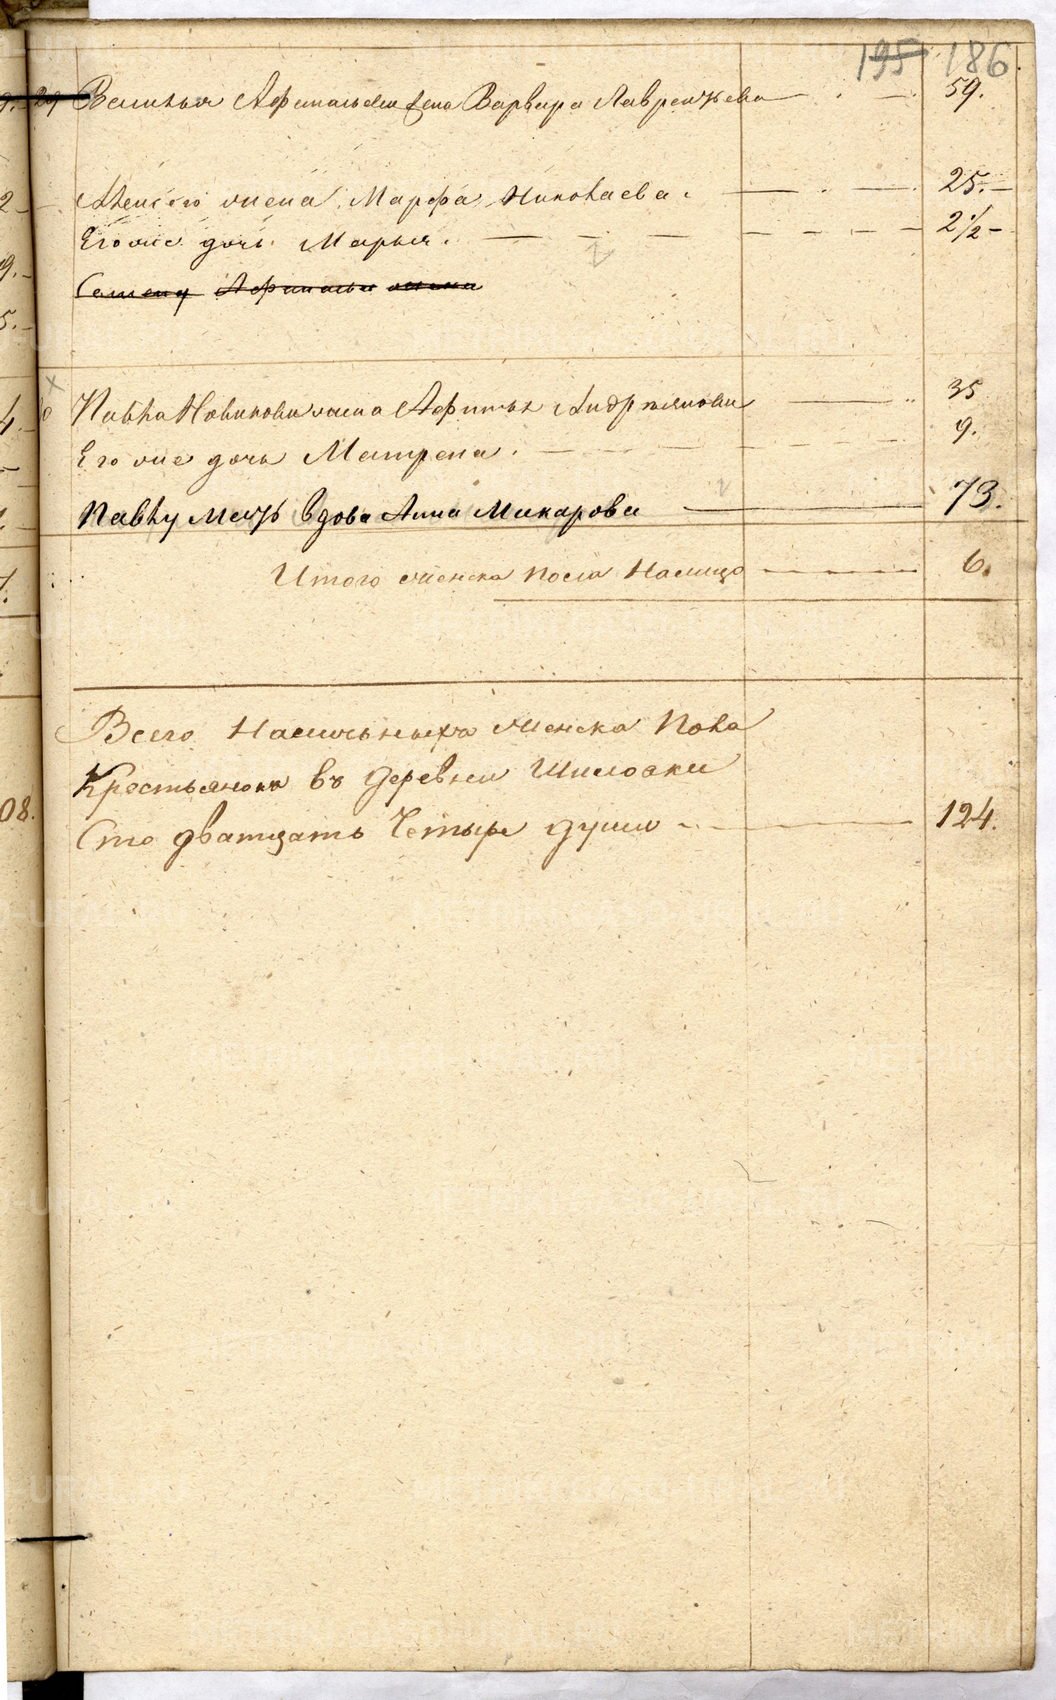 195 186.
29 Василья Афанасьева жена Варвара Лаврентьева 59.
жена Марфа Николаева 25.
Его же дочь Марья. 2 1/2
Семену Афанасьева жена
Павла Новикова жена Афимья Андреянова 35
Его же дочь Матрена. 9.
Павлу мать вдова Анна Макарова 73.
Итого женска пола налицо 6.
Всего наличныхъ женска пола
Крестьянокъ въ деревни Шиловки
Сто дватцать Четыре души 124.
08.